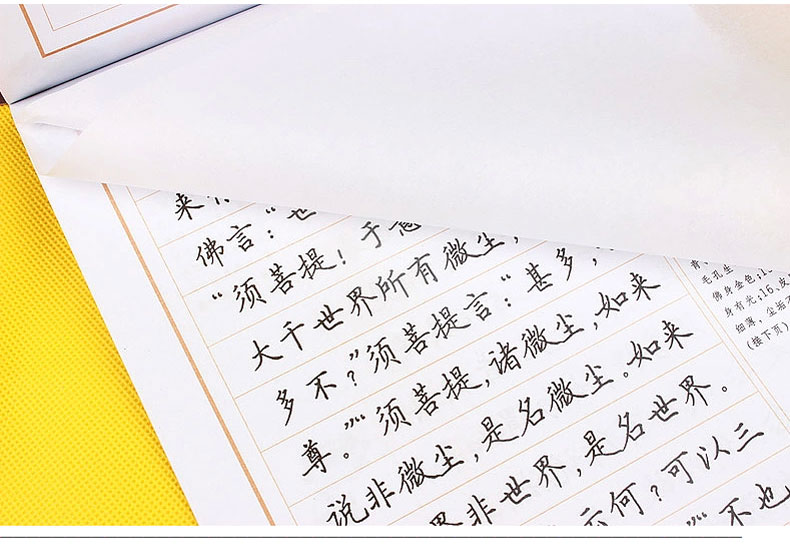 来
佛言：“世
“须菩提！于意
大千世界所有微尘，
多不？”须菩提言：“甚多，
尊。”“须菩提，诸微尘，如来
说非微尘，是名微尘。如来
界非世界，是名世界。
云何？可以三
”“不也
毛孔生
佛身金色；1
身有光；16、皮
细薄，尘垢不
(接下页)